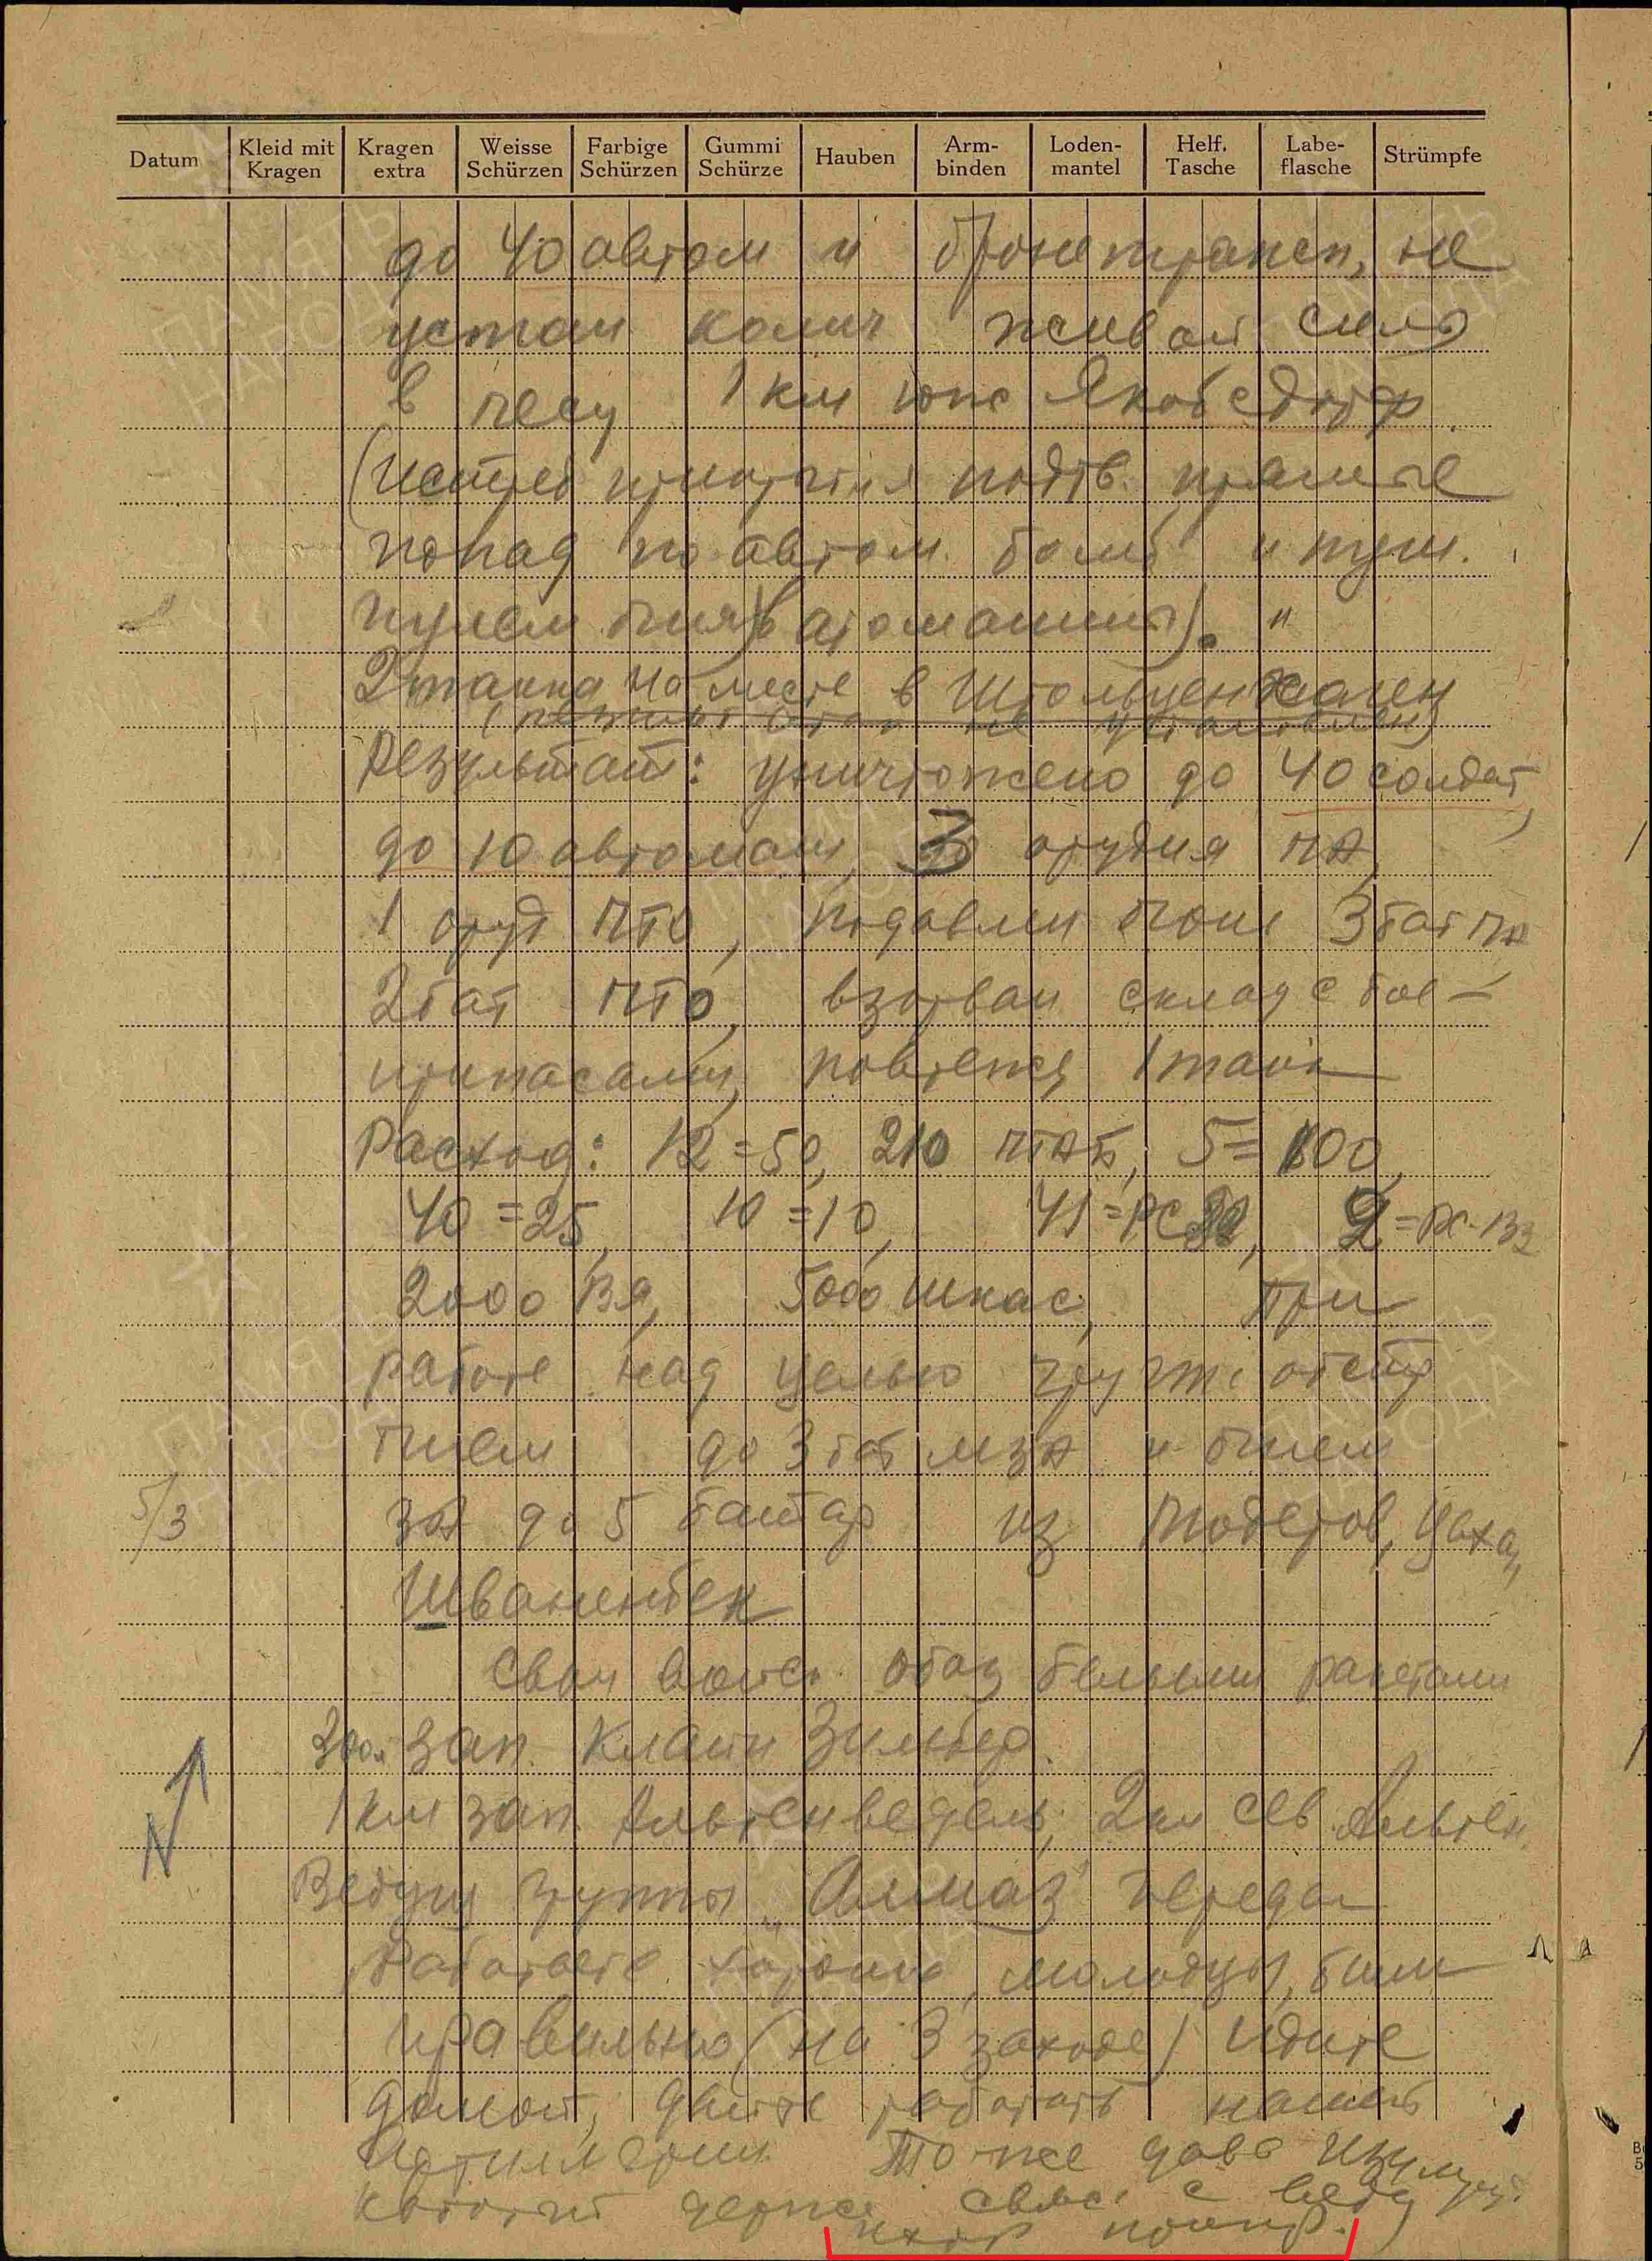 Datum Kleid mit Kragen Kragen extra Weisse Schürzen Farbige Schürzen Gummi Schürze Hauben Arm-binden Loden-mantel Helf. Tasche Labe-flasche Strümpfe
до 40 автом и бронетрансп, не
устан колич живой силы
в лесу 1 км южн Якобсдорф
(истреб прикрытия подтв. прямые
попад по автом. бомб и пуш.
пулем огня в автомашины). "
2 танка на месте в Штольценхаген
Результат: уничтожено до 40 солдат,
до 10 автомаш, 3 орудия ПА,
1 оруд ПТО, подавлен огонь 3 бат ПА
2 бат ПТО, взорван склад с бое-
припасами, поврежд 1 танк
Расход: 12=50, 210 ПТАБ, 5=100,
40=25, 10=10, 41=РС 82, 2=РС-132
2000 ВЯ, 5000 шкас, При
работе над целью группы обстр
огнем до 3 бат МЗА и огнем
5/3 ЗА до 5 батар из
Шваненбек
Свои войск. обоз белыми ракетами
зап. Клайн Зильбер.
1 км зап. Альтенведель, 2 км сев. Альтен.
Ведущ группы "Алмаз" передал
Работаете хорошо, молодцы, били
правильно (на 3 заходе) идите
домой, дайте работать нашей
Артиллерии. То же дава Изумруд.
который держа связь с веду